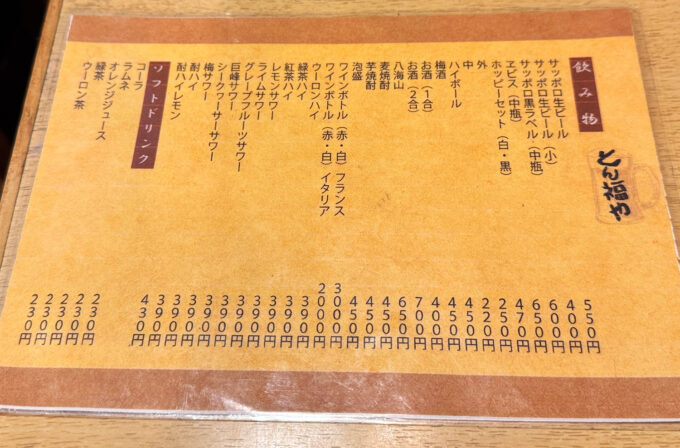 とん福や
飲み物
サッポロ生ビール 550円
サッポロ生ビール(小) 400円
サッポロ黒ラベル(中瓶) 600円
ヱビス(中瓶) 650円
ホッピーセット(白・黒) 470円
外 250円
中 220円
ハイボール 450円
梅酒 450円
お酒(1合) 400円
お酒(2合) 700円
八海山 650円
麦焼酎 450円
芋焼酎 450円
泡盛 450円
ワインボトル(赤・白)フランス 3000円
ワインボトル(赤・白)イタリア 2000円
ウーロンハイ 390円
緑茶ハイ 390円
紅茶ハイ 390円
レモンサワー 390円
ライムサワー 390円
グレープフルーツサワー 390円
巨峰サワー 390円
シークヮーサーサワー 390円
梅サワー 390円
酎ハイ 390円
酎ハイレモン 430円
ソフトドリンク
コーラ 230円
ラムネ 230円
オレンジジュース 230円
緑茶 230円
ウーロン茶 230円